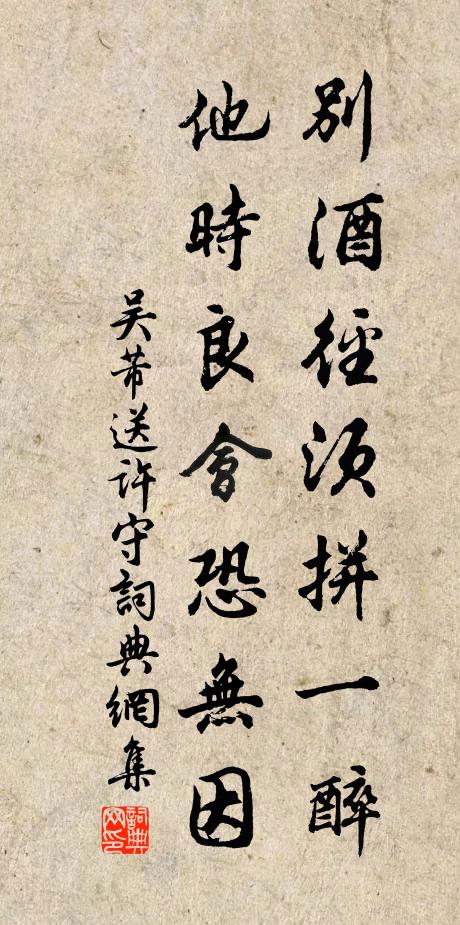 別酒徑須拼一醉
他時良會恐無因
吴芾送许守詞典網集
詞典
网印